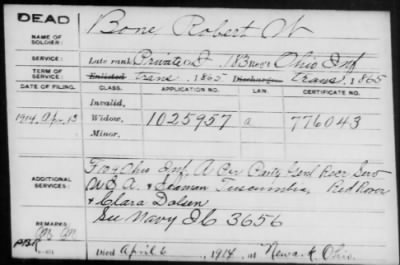 DEAD
NAME OF SOLDIER: Bone Robert W
SERVICE: Late rank Private I, 183 Regt Ohio Inf
TERM OF SERVICE: Enlisted trans., 1865 Discharged trans., 1865
DATE OF FILING. CLASS. APPLICATION NO. LAW. CERTIFICATE NO.
Invalid,
1914, Apr, 13 Widow, 1025957 a 776043
Minor,
ADDITIONAL SERVICES: Ohio Inf. A Genl Recr Serv
U.S.A. & Seaman Tuscumbia, Red Rover
& Clara Dolsen
REMARKS: See Navy 3656
Died April 6, 1914, at Newark, Ohio.